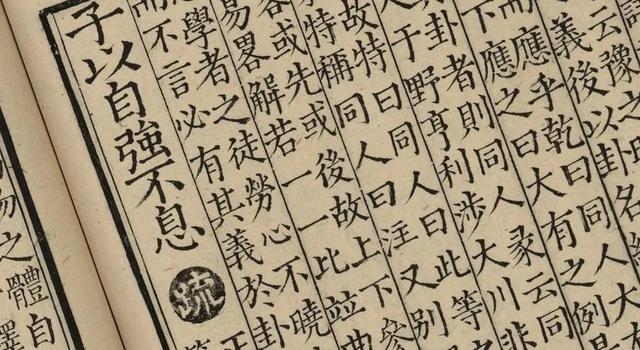 義以卦名
而應乎乾曰同人大
下應之曰大有之例
卦者則同人彖云同
人于野亨利涉大川非
故特曰同人曰此等
特稱同人曰注又別
或先或後故上下參
易畧解若一一比並
學者之徒勞心不曉
而不言必有其義於卦
子以自強不息疏
之體自